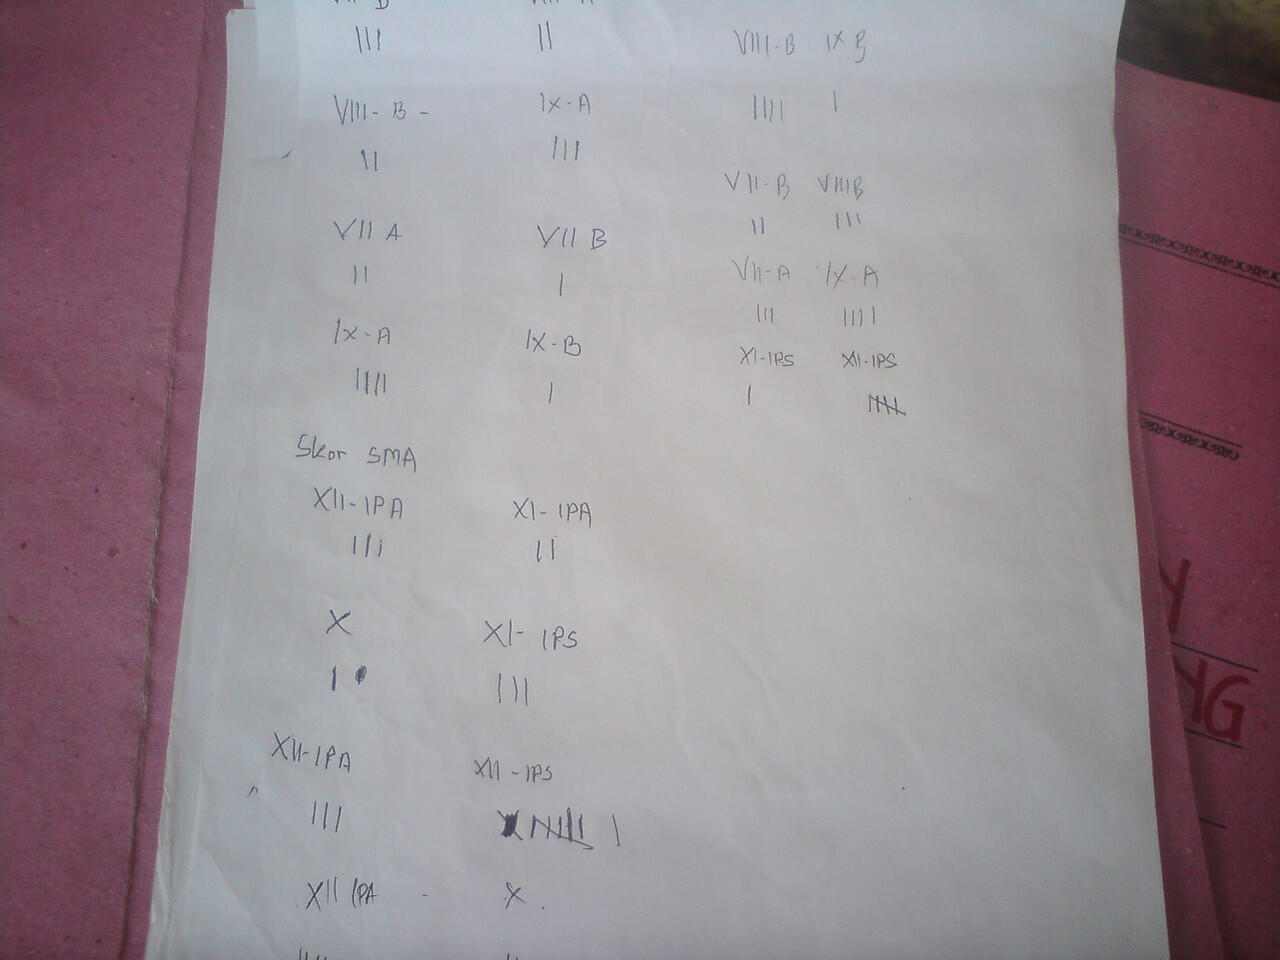 III II
VIII-B - IX-A
II III
VII A VII B
II I
IX-A IX-B
IIII I
Skor SMA
XII-IPA XI-IPA
III II
X XI-IPS
I III
XII-IPA XII-IPS
III
XII IPA - X.
VIII-B IX B
IIII I
VII-B VIIIB
II III
VII-A IX-A
III IIII
XI-IPS XII-IPS
I